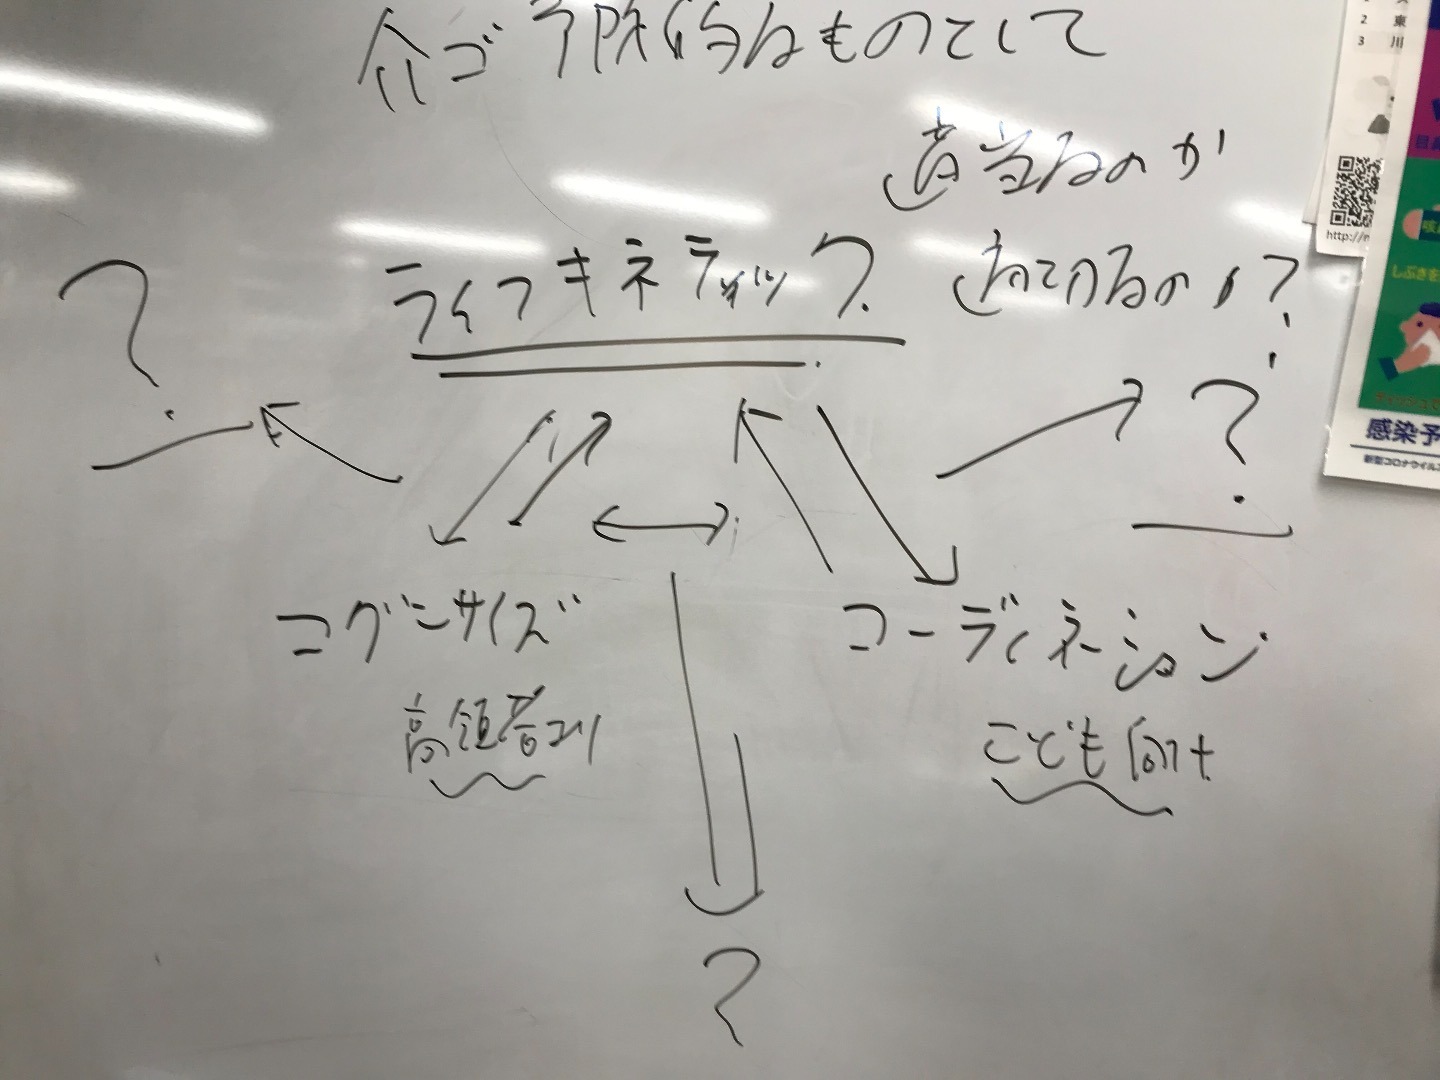 介ゴ予防的なものとして
適当なのか
適切なのか?
ライフキネティック
?
?
コグニサイズ
高領者
コーディネーション
こども向け
?
2 東
3 川
http://
目
しぶきを
感染予
新型コロナウイルス